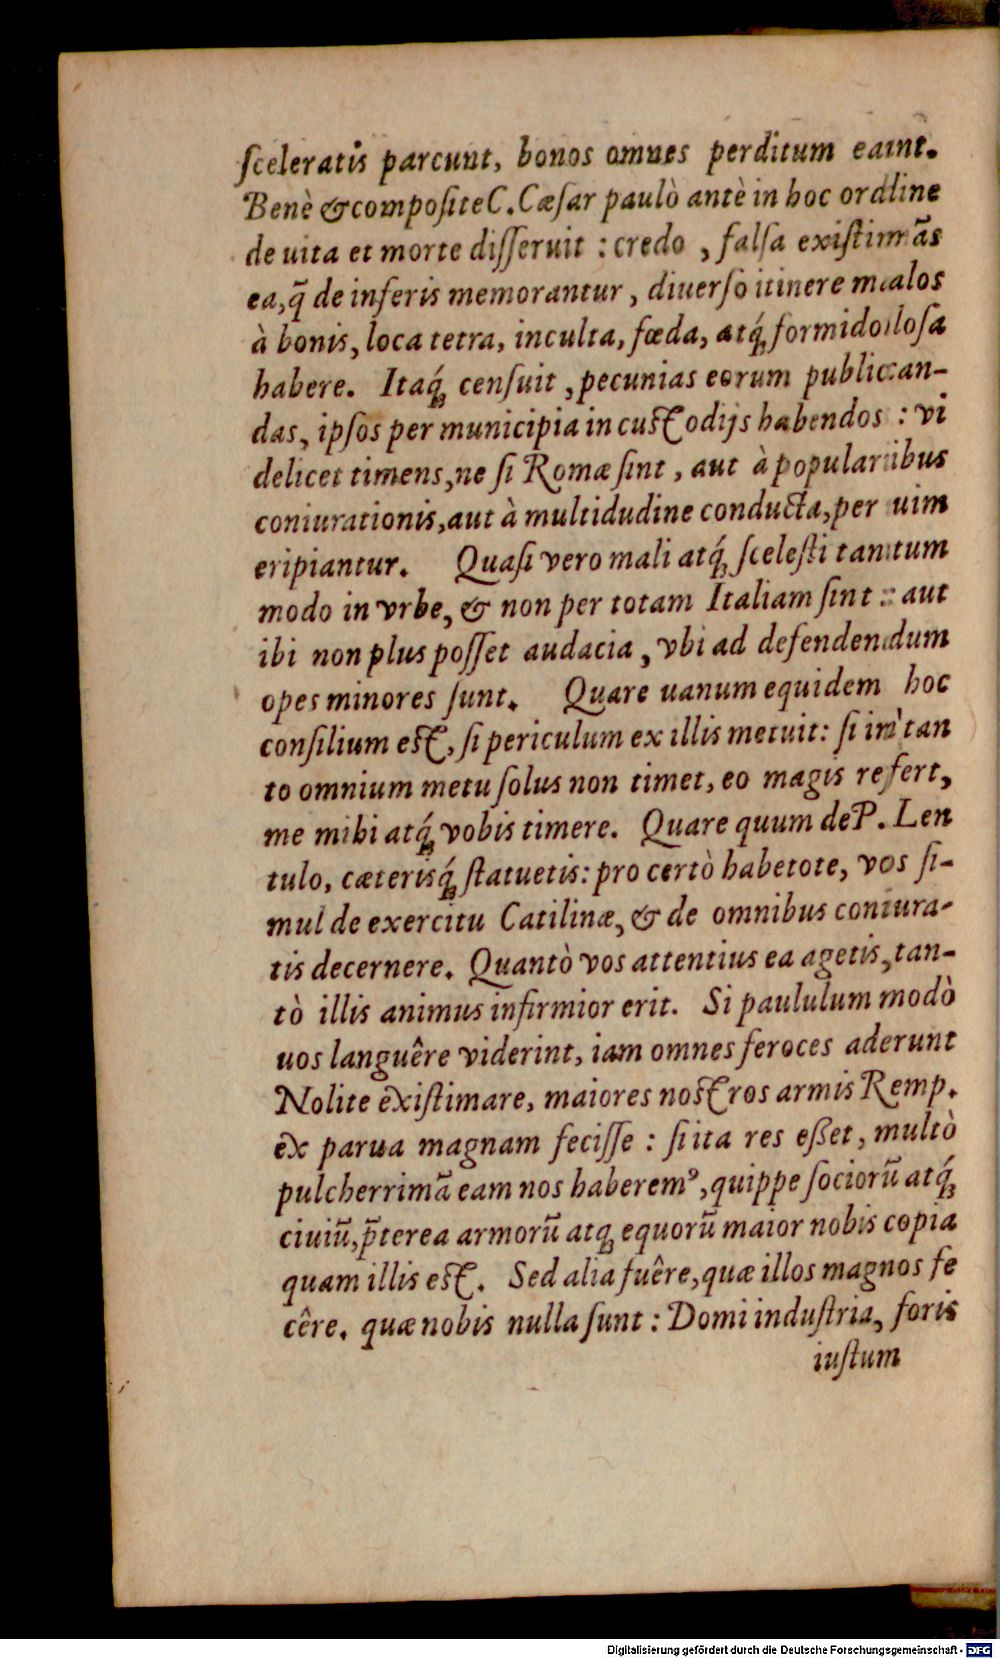 ſceleratis parcunt, bonos omnes perditum eant.
Benè & compoſite C. Cæſar paulò antè in hoc ordine
de uita et morte diſſeruit : credo , falſa exiſtimãs
ea, q̃ de inferis memorantur , diuerſo itinere malos
à bonis, loca tetra, inculta, fœda, atq́ꝫ formidoloſa
habere. Itaq́ꝫ cenſuit , pecunias eorum publican-
das, ipſos per municipia in cuſtodijs habendos : vi
delicet timens, ne ſi Romæ ſint , aut à popularibus
coniurationis, aut à multidudine conducta, per uim
eripiantur. Quaſi vero mali atq́ꝫ ſceleſti tantum
modo in vrbe, & non per totam Italiam ſint : aut
ibi non plus poſſet audacia , vbi ad defendendum
opes minores ſunt. Quare uanum equidem hoc
conſilium eſt, ſi periculum ex illis metuit: ſi in tan
to omnium metu ſolus non timet, eo magis refert,
me mihi atq́ꝫ vobis timere. Quare quum de P. Len
tulo, cæterisq́ꝫ ſtatuetis: pro certò habetote, vos ſi-
mul de exercitu Catilinæ, & de omnibus coniura-
tis decernere. Quantò vos attentius ea agetis, tan-
tò illis animus infirmior erit. Si paululum modò
uos languêre viderint, iam omnes feroces aderunt
Nolite exiſtimare, maiores noſtros armis Remp.
ex parua magnam feciſſe : ſi ita res eßet, multò
pulcherrimã eam nos haberemꝰ, quippe ſociorũ atq́ꝫ
ciuiũ, p̃terea armorũ atqꝫ equorũ maior nobis copia
quam illis eſt. Sed alia fuêre, quæ illos magnos fe
cêre. quæ nobis nulla ſunt : Domi induſtria, foris
iuſtum
Digitalisierung gefördert durch die Deutsche Forschungsgemeinschaft - DFG